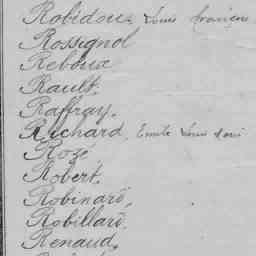 Robidou, Louis françois
Rossignol
Reboux
Rault.
Raffray.
Richard, Emile Louis
Rozé
Robert.
Robinard,
Robillard.
Renaud,